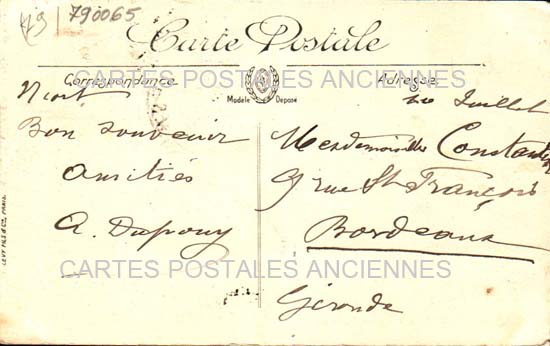 79 / 790065
Carte Postale
Correspondance
Adresse
Modèle Déposé
CARTES POSTALES ANCIENNES
Niort
Juillet
Bon souvenir
Amitiés
A. Dupouy
Mesdemoiselles Constantin
9 rue St François
Bordeaux
Gironde
CARTES POSTALES ANCIENNES
LEVY FILS & Cie, PARIS